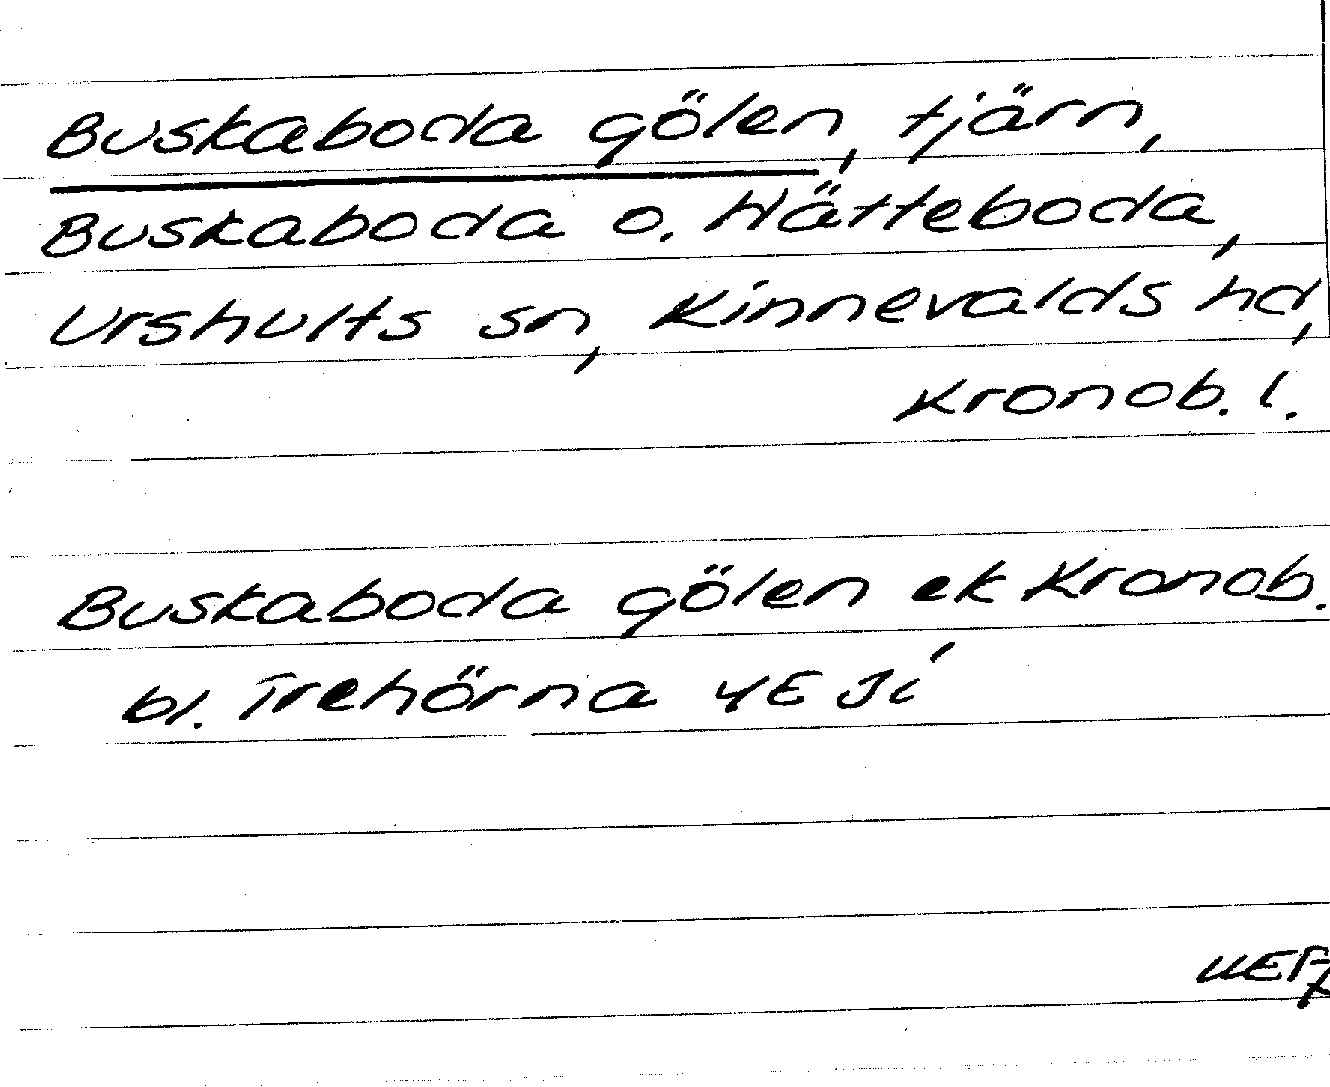 Buskaboda gölen, tjärn,
Buskaboda o. Hätteboda,
Urshults sn, Kinnevalds hd,
Kronob. l.
Buskaboda gölen ek Kronob.
bl. Trehörna 4E JI